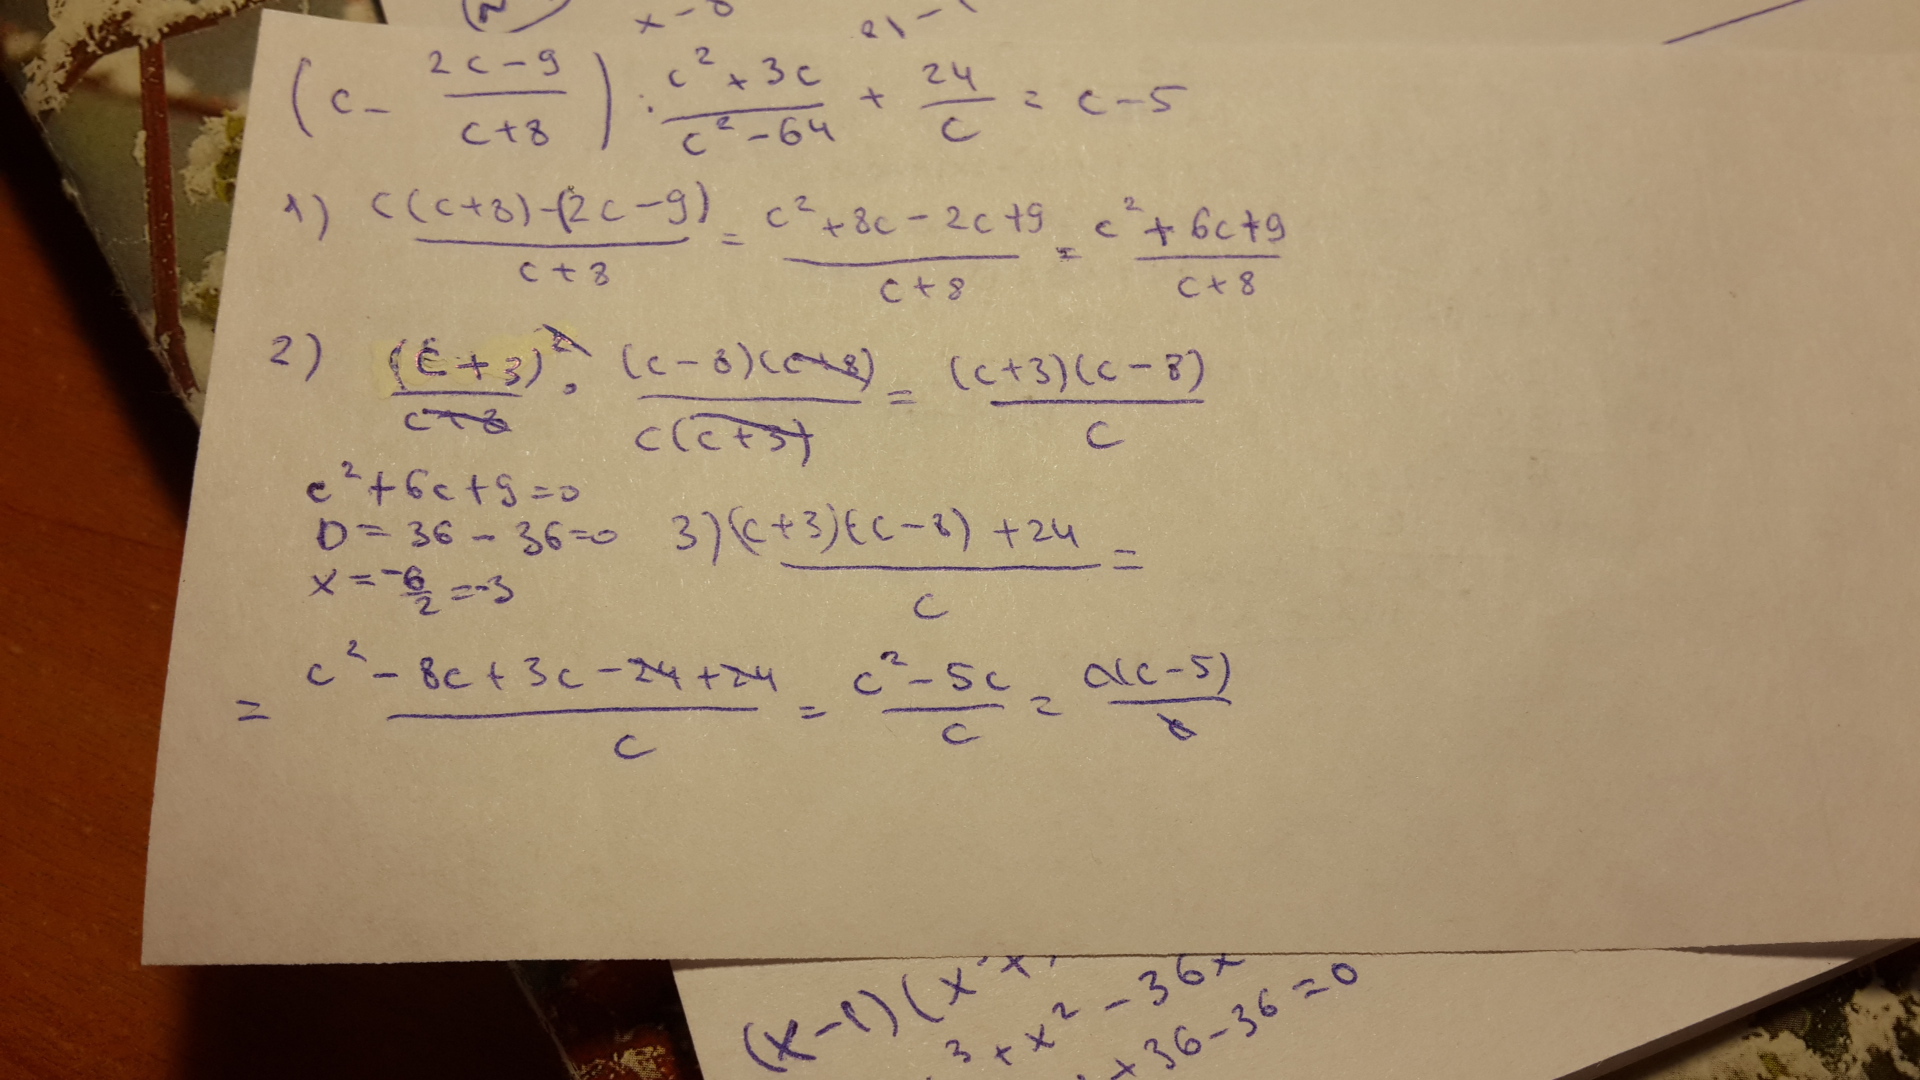 x - 8
(c - \frac{2c-9}{c+8}) : \frac{c²+3c}{c²-64} + \frac{24}{c} = c-5
1) \frac{c(c+8)-(2c-9)}{c+8} = \frac{c²+8c-2c+9}{c+8} = \frac{c²+6c+9}{c+8}
2) \frac{(c+3)²}{c+8} · \frac{(c-8)(c+8)}{c(c+3)} = \frac{(c+3)(c-8)}{c}
c²+6c+9=0
D = 36 - 36=0
x = \frac{-6}{2} = -3
3) \frac{(c+3)(c-8)+24}{c} =
= \frac{c²-8c+3c-24+24}{c} = \frac{c²-5c}{c} = \frac{c(c-5)}{c}
(x-1)(x
3 + x² - 36x
+ 36 - 36 = 0